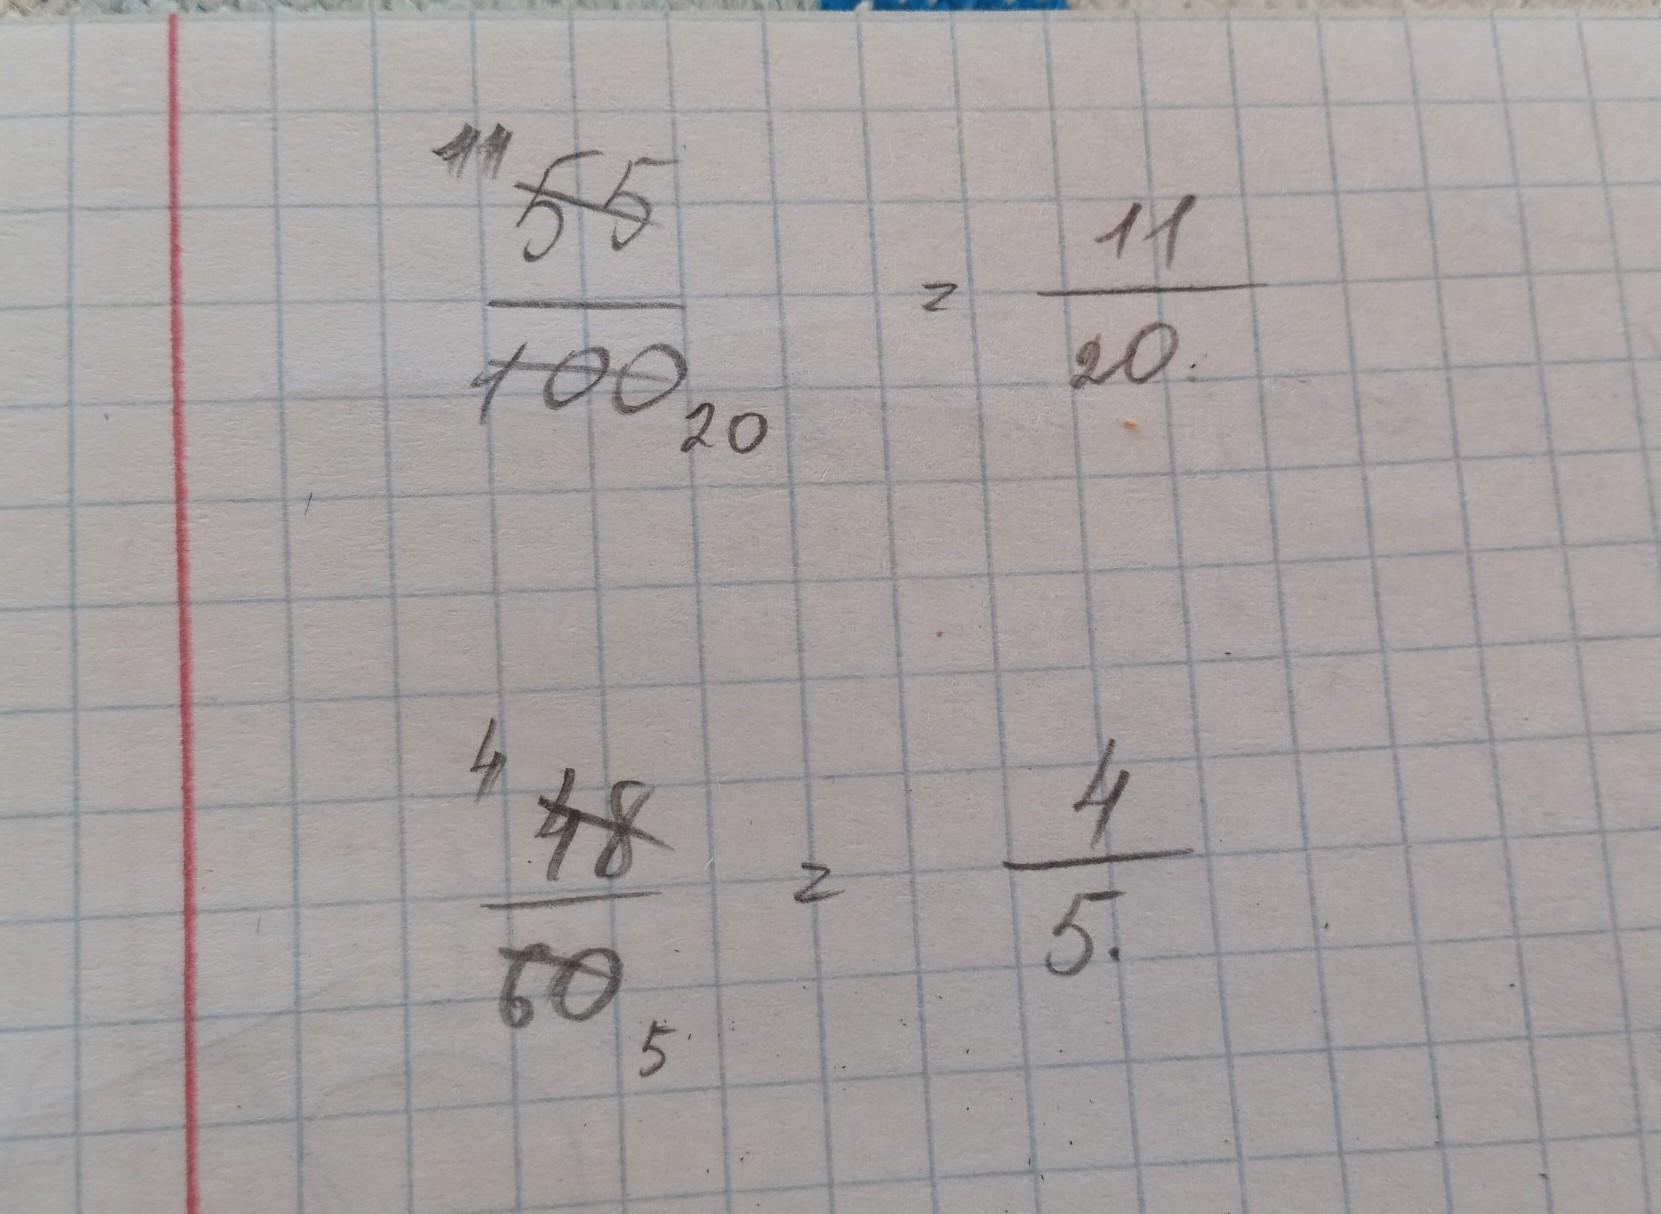 11 55
100 20 = 11/20.
4 48
60 5 = 4/5.